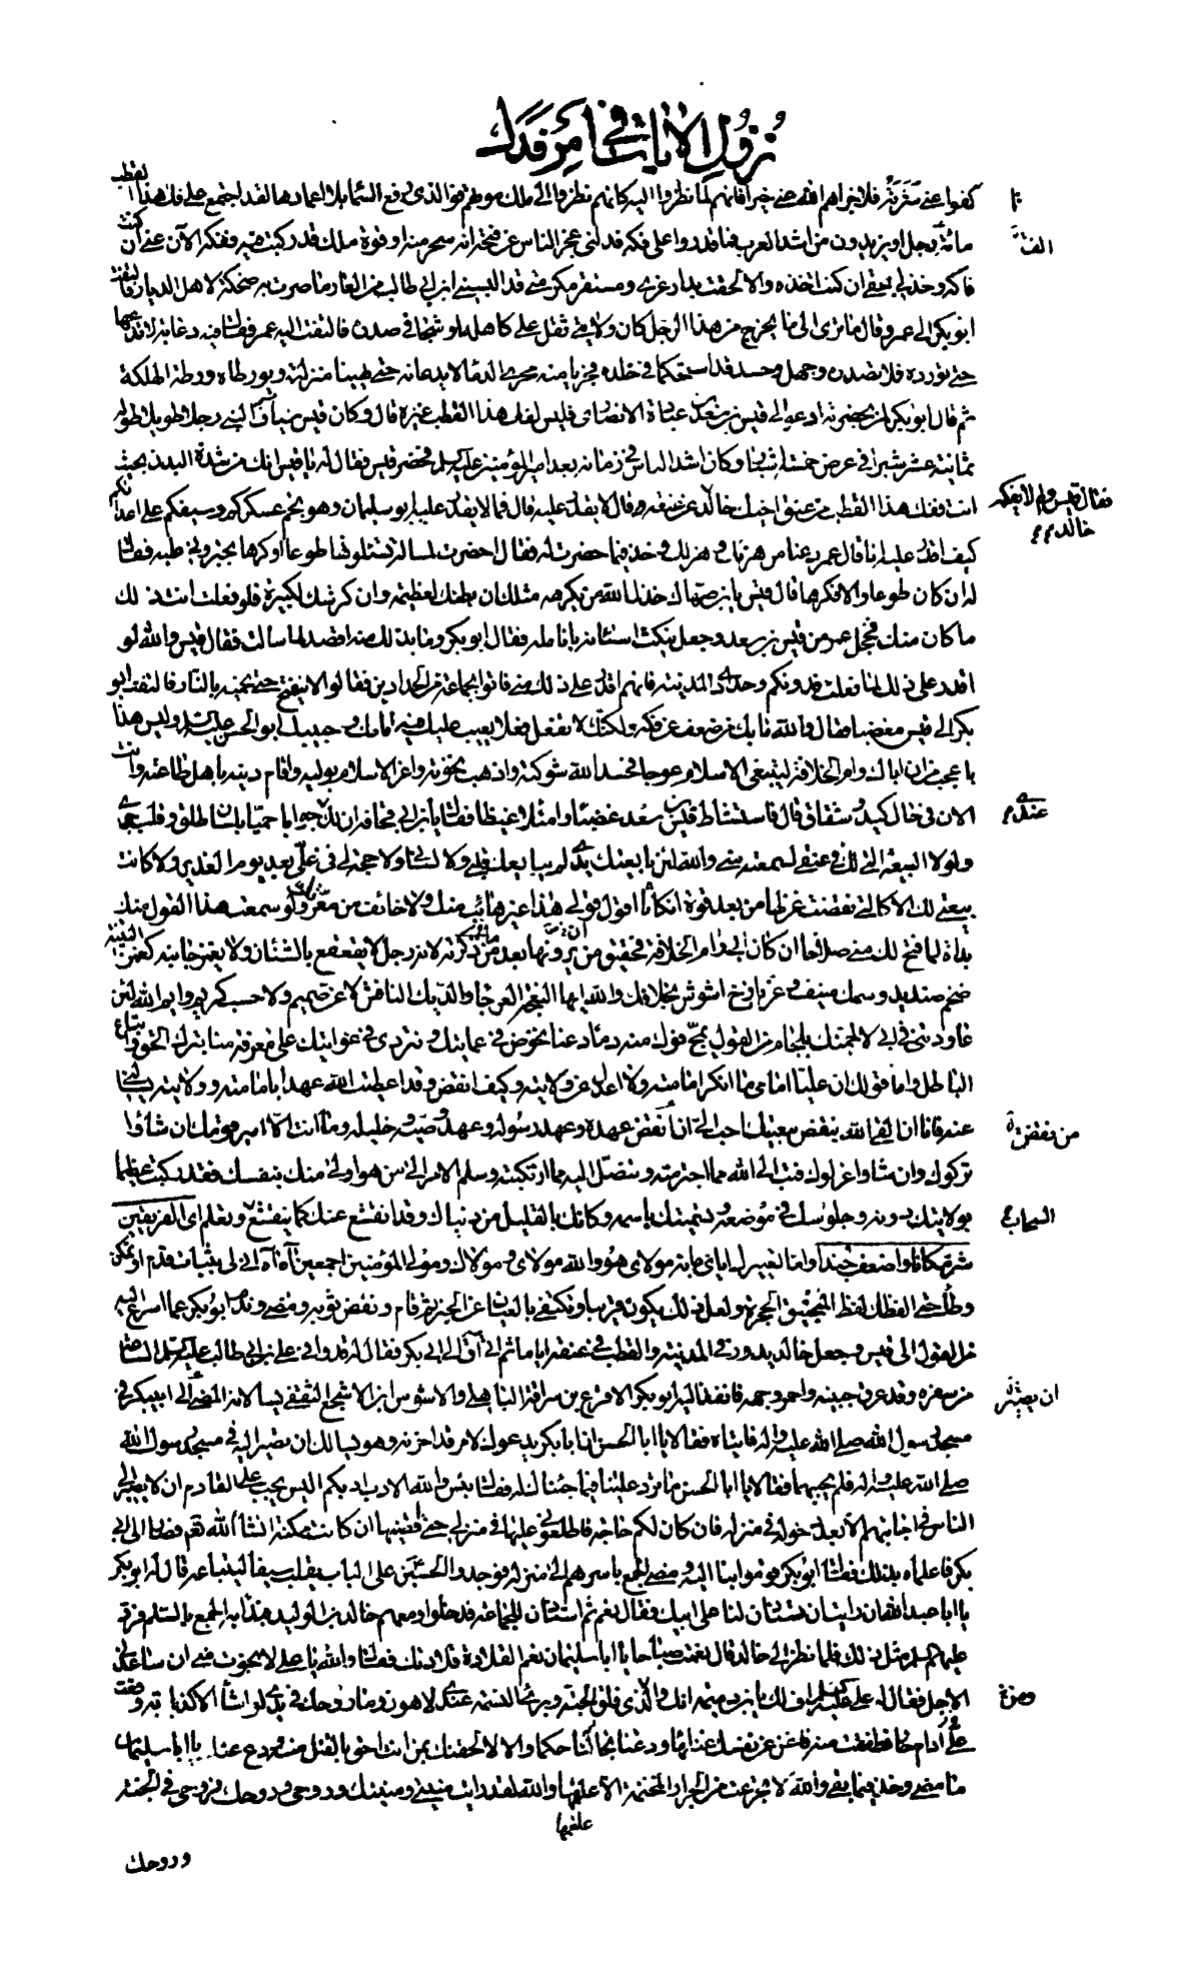 نزول الآيات في أمر فدك
كفوا عني سفرته فلا جزاهم الله عني خيرا فانهم لما نظروا اليه كانهم نظروا الى ملك موتهم فوالذي رفع السماء بلا اعمادها لقد اجتمع على فك هذا القطب
مائة رجل او يزيدون من اشد العرب فما قدروا على فكه فدلني عجز الناس عن فتحه انه سحر منه او قوة ملك قد ركبت فيه ففكه الآن عني ان كنت
فاكه وخذ لي بحقي ان كنت اخذه والا لحقت بدار عزي ومستقر مكرمتي قد البسني ابن ابي طالب من العار ما صرت به ضحكة لاهل الديار فالتفت
ابو بكر الى عمر وقال ما ترى الى ما يخرج من هذا الرجل كان ولايتي ثقل على كاهله او شجا في صدره فالتفت اليه عمر فقال فيه دعابة لا تدعها
حتى تورده فلا تصدره وجهل وحسد قد استحكما في خلده فجريا منه مجرى الدماء لا يدعانه حتى يهينا منزلته ويورطاه ورطة الهلكة
ثم قال ابو بكر لمن بحضرته ادعوا لي قيس بن سعد بن عبادة الانصاري فليس لفك هذا القطب غيره قال وكان قيس سياف النبي رجلا طويلا طوله
ثمانية عشر شبرا في عرض خمسة اشبار وكان اشد الناس في زمانه بعد امير المؤمنين عليه السلم فحضر قيس فقال له يا قيس انك من شدة البدن بحيث
انت ففك هذا القطب من عنق اخيك خالد عن عنقه وقال لا يقدر عليه قال فما لا يقدر عليه ابو سليمان وهو نجم عسكركم وسيفكم على اعدائكم
فقال قيس ولم لا يفكه خالد
كيف اقدر عليه انا قال عمر دعنا من هزئك وهزلك وخذ فيما حضرت له فقال احضرت لمسئلة تسئلونها طوعا او كرها تجبروني عليه فقال
له ان كان طوعا والا فكرها قال قيس يا بن صهاك خذل الله من يكرهه مثلك ان بطنك لعظيمة وان كرشك لكبيرة فلو فعلت انت ذلك
ما كان منك فخجل عمر من قيس بن سعد وجعل ينكث اسنانه بانامله فقال ابو بكر وما بذلك منه اقصد لما سالت فقال قيس والله لو
اقدر على ذلك لما فعلت فدونكم وحدادي المدينة فانهم اقدر على ذلك مني فاتوا بجماعة من الحدادين فقالوا لا ينفتح حتى نحميه بالنار فالتفت ابو
بكر الى قيس مغضبا فقال والله ما بك من ضعف عن فكه ولكنك لا تفعل فعلا يعيب عليك فيه امامك وحبيبك ابو الحسن عليه السلم وليس هذا
باعجب من ان اباك رام الخلافة ليبتغي الاسلام عوجا فحسد الله شوكته واذهب نخوته واعز الاسلام بوليه واقام دينه باهل طاعته وانت
الان في حال كيد وشقاق قال فاستشاط قيس بن سعد غضبا وامتلا غيظا فقال يا بن ابي قحافة ان لك جوابا حميا بلسان طلق وقلب جري
عندي
ولولا البيعة التي لك في عنقي لسمعته مني والله لئن بايعتك يدي لم يبايعك قلبي ولا لساني ولا حجة لي في علي بعد يوم الغدير ولا كانت
بيعتي لك الا كالتي نقضت غزلها من بعد قوة انكاثا اقول قولي هذا غير هائب منك ولا خائف من معرتك ولو سمعت هذا القول منك
بداة لما فتح لك مني صلحا ان كان ابي رام الخلافة فحقيق من يرومها بعد من ذكرته لانه رجل لا يقعقع بالشنان ولا يغمز جانبه كغمز التينة
ضخم صنديد وسمك منيف وعز باذخ اشوش بخلافك والله ايها النعجة العرجاء والديك النافش لا عز صميم ولا حسب كريم وايم الله لئن
عاودتني في ابي لالجمنك بلجام من القول يمج فوك منه دما دعنا نخوض في عمايتك ونتردى في غوايتك على معرفة منا بترك الحق واتباع
الباطل واما قولك ان عليا امامي ما انكر امامته ولا اعدل عن ولايته وكيف انقض وقد اعطيت الله عهدا بامامته وولايته يسئلني
عنه فانا ان القى الله بنقض بيعتك احب الي ان انقض عهده وعهد رسوله وعهد وصيه وخليله وما انت الا امير قومك ان شاؤا
من نقض
تركوك وان شاؤا عزلوك فتب الى الله مما اجترمته وتنصل اليه مما ارتكبته وسلم الامر الى من هو اولى منك بنفسك فقد ركبت عظيما
بولايتك دونه وجلوسك في موضعه وتسميتك باسمه وكانك بالقليل من دنياك وقد انقشع عنك كما ينقشع وتعلم اي الفريقين
السحاب
شر مكانا واضعف جندا واما تعييرك اياي بانه مولاي هو والله مولاي ومولاك ومولى المؤمنين اجمعين آه آه انى لي بثبات قدم او تمكن
وطاة حتى الفظك لفظ المنجنيق الحجرة ولعل ذلك يكون قريبا ونكتفي بالعيان عن الخبر ثم قام ونفض ثوبه ومضى وندم ابو بكر عما اسرع اليه
من القول الى قيس وجعل خالد يدور في المدينة والقطب في عنقه اياما ثم اتى آت الى ابي بكر فقال له قد وافى علي بن ابي طالب عليه السلم الساعة
من سفره وقد عرق جبينه واحمر وجهه فانفذ اليه ابو بكر الاقرع بن سراقة الباهلي والاشوس بن الاشجع الثقفي يسالانه المضي الى ابي بكر في
مسجد رسول الله صلى الله عليه واله فاتياه فقالا يا ابا الحسن ان ابا بكر يدعوك لامر قد احزنه وهو يسالك ان تصير اليه في مسجد رسول الله
صلى الله عليه واله فلم يجبهما فقالا يا ابا الحسن ما ترد علينا فيما جئناك له فقال بئس والله الادب ادبكم اليس يجب على القادم ان لا يصير الى
الناس في اجابتهم الا بعد دخوله في منزله فان كان لكم حاجة فاطلعوني عليها في منزلي حتى اقضيها ان كانت ممكنة انشا الله تعالى فصارا الى ابي
بكر فاعلماه بذلك فقال ابو بكر قوموا بنا اليه ومضى الجمع باسرهم الى منزله فوجدوا الحسين على الباب يقلب سيفا ليبتاعه قال له ابو بكر
يا ابا عبد الله ان رايت ان تستاذن لنا على ابيك فقال نعم ثم استاذن للجماعة فدخلوا ومعهم خالد بن الوليد فبدا به الجمع بالسلم فرد
عليهم السلم مثل ذلك فلما نظر الى خالد قال نعمت صباحا يا ابا سليمان نعم القلادة قلادتك فقال والله يا علي لا نجوت مني ان ساعدني
الاجل فقال له علي عليه السلم اف لك يا بن دميمة انك والذي فلق الحبة وبرء النسمة عندي لاهون وما روحك في يدي لو اشاء الا كذبابة وقعت
على ادام حار فطفقت منه فاغن عن نفسك غناءها ودعنا بحالنا حكماء والا لالحقنك بمن انت احق بالقتل منه ودع عنك يا ابا سليمان
ما مضى وخذ فيما بقي والله لا تجرعت من الجرار المختمة الا علقمها والله لقد رايت منيتي ومنيتك وروحي وروحك فروحي في الجنة
علقمها
وروحك